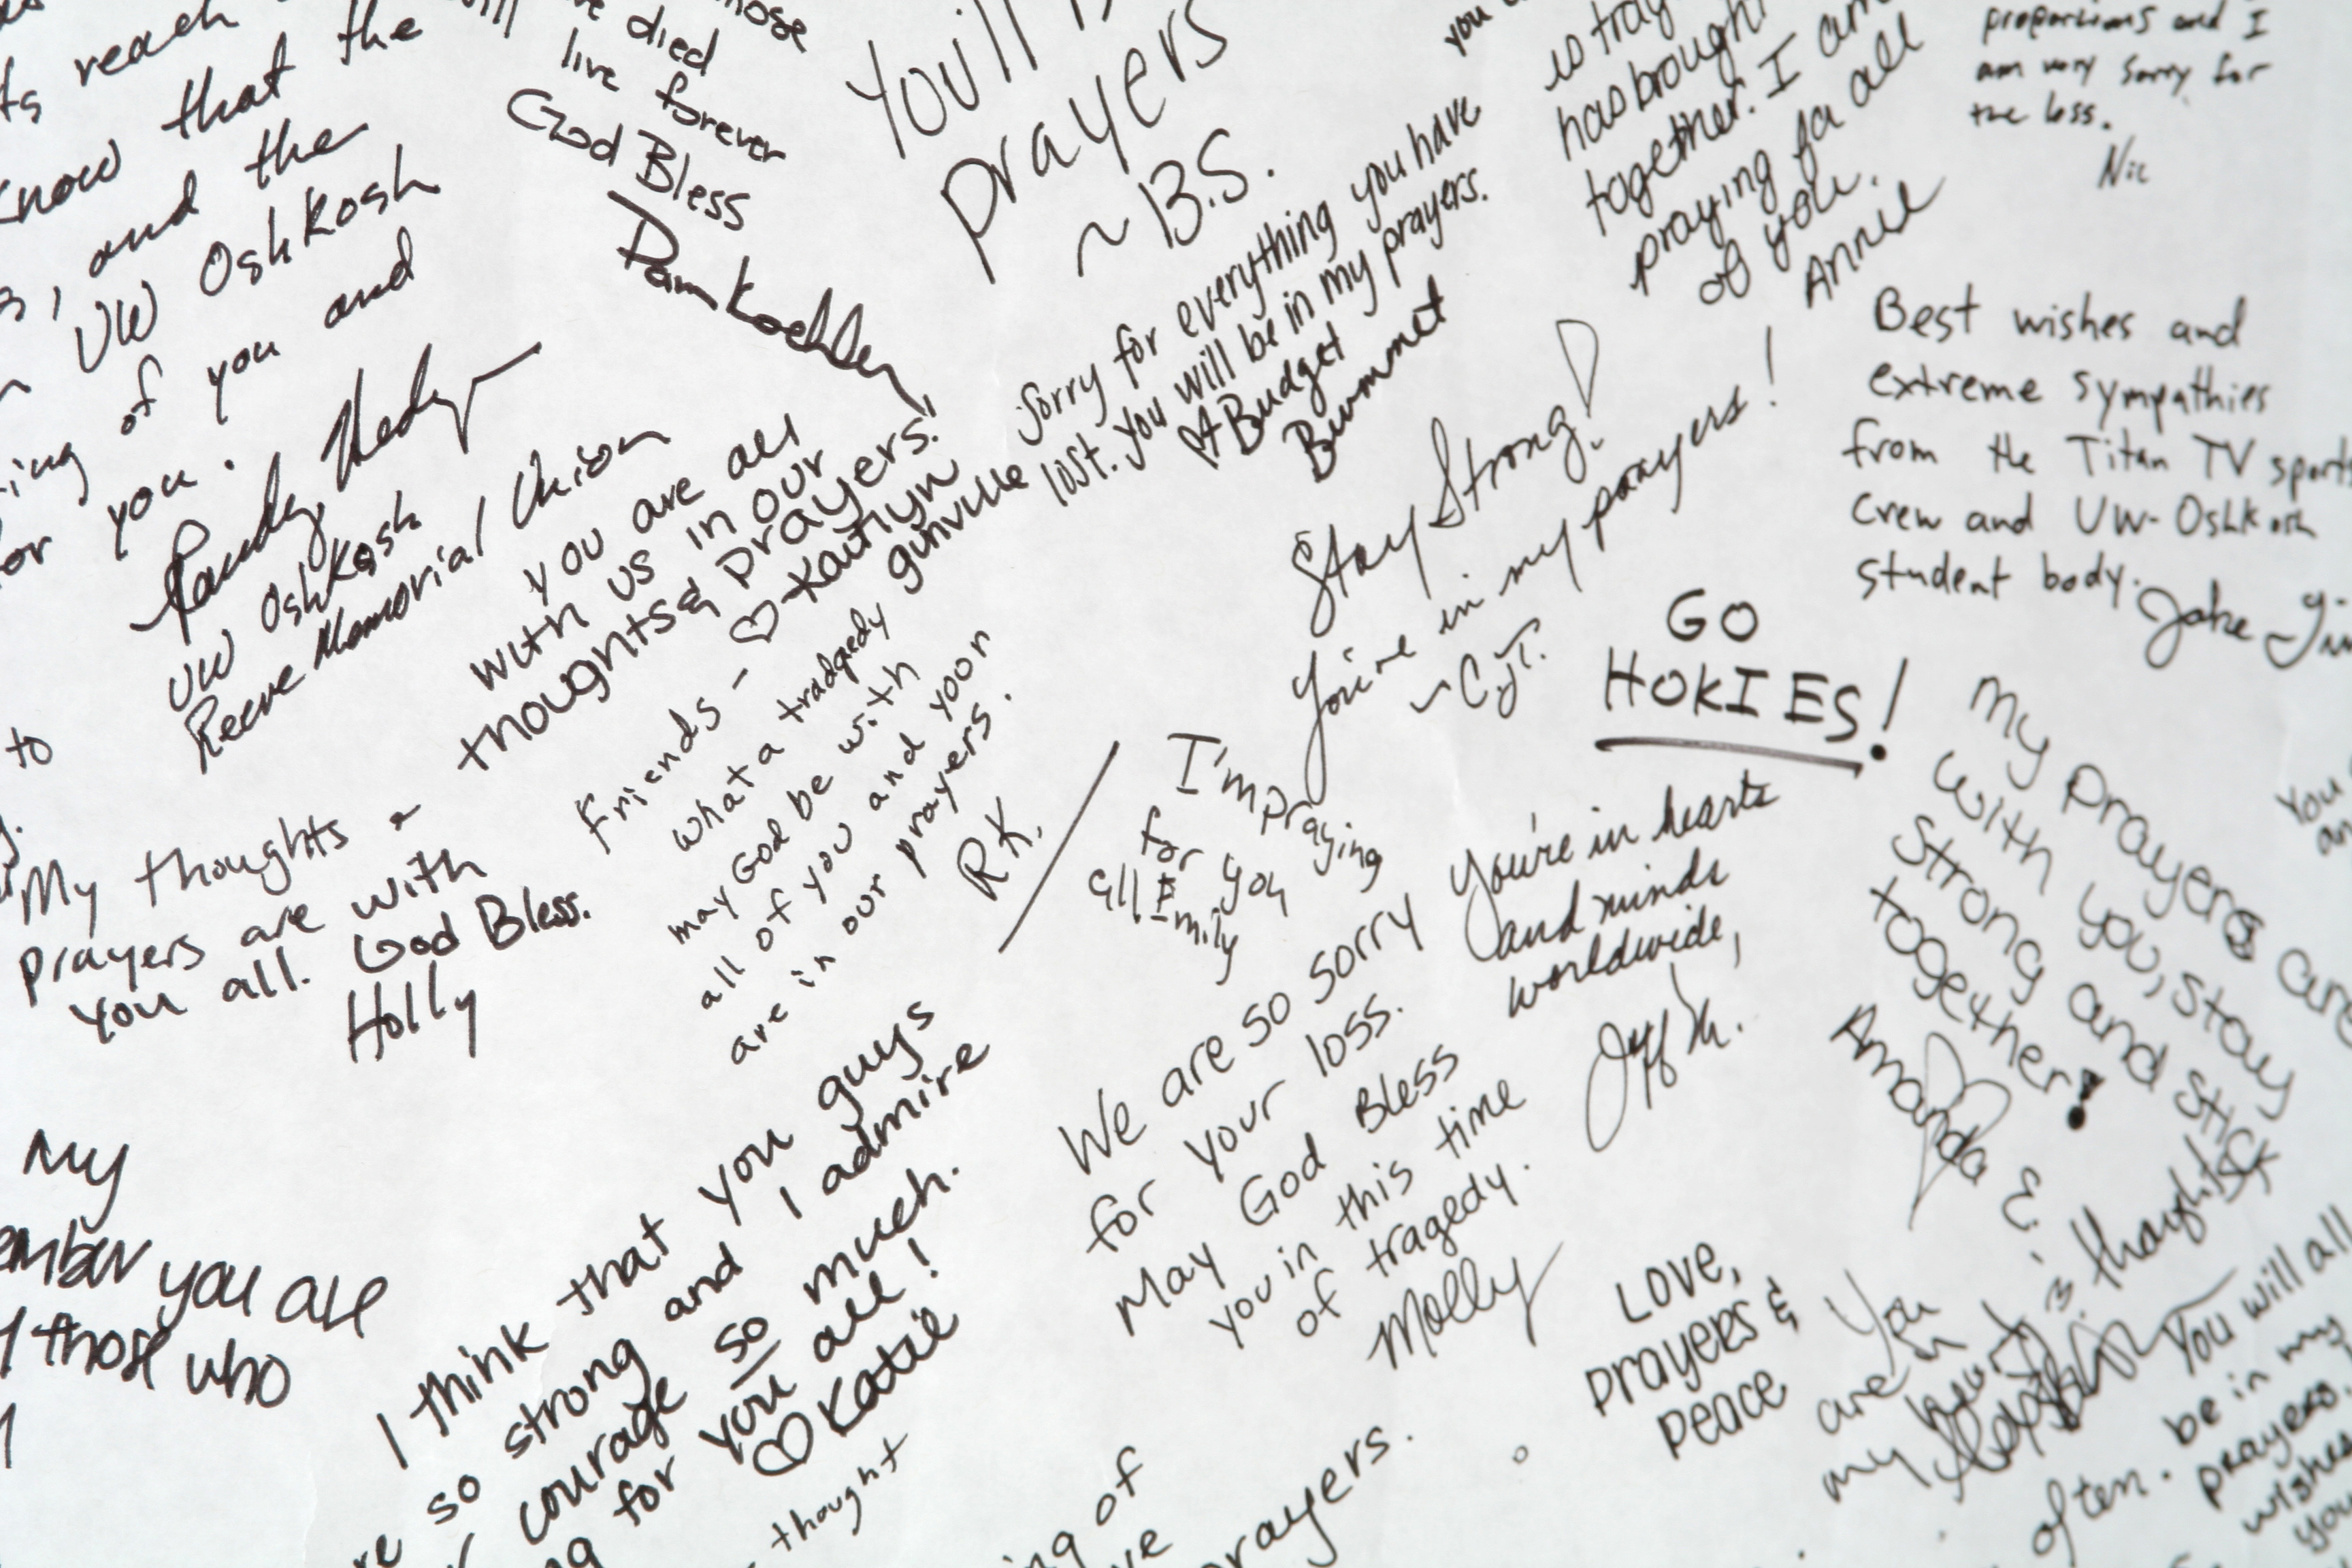 reach
know that the
and the
UW Oshkosh
of you and
you.
Randy Hedge
UW Oshkosh
Reeve Memorial Union
died
live forever
God Bless
Pam Koehler
You'll
prayers
~B.S.
Sorry for everything you have
lost. You will be in my prayers.
♡ Budget
Bummet
has brought
together. I am
praying for all
of you.
Annie
proportions and I
am very sorry for
the loss.
Nic
Best wishes and
extreme sympathies
from the Titan TV sports
crew and UW-Oshkosh
student body.
Jake
you are all
with us in our
thoughts & prayers!
♡ Kaitlyn
gunville
Stay Strong!
You're in my prayers!
~C.J.T.
GO
HOKIES!
Friends -
what a tradgedy
may God be with
all of you and yoor
are in our prayers.
R.K.
I'm praying
for you
all
Emily
My thoughts &
prayers are with
you all. God Bless.
Holly
You're in hearts
and minds
worldwide,
Jeff M.
My prayers are
with you, stay
strong and stick
together!
Amanda
We are so sorry
for your loss.
May God Bless
you in this time
of tragedy.
Molly
My
you are
those who
I think that you guys
so strong and I admire
courage so much.
for you all!
♡ Katie
thought
Love,
prayers &
peace
You
are in
my
thoughts
You will all
often. be in my
prayers
wishes
of
prayers.
to